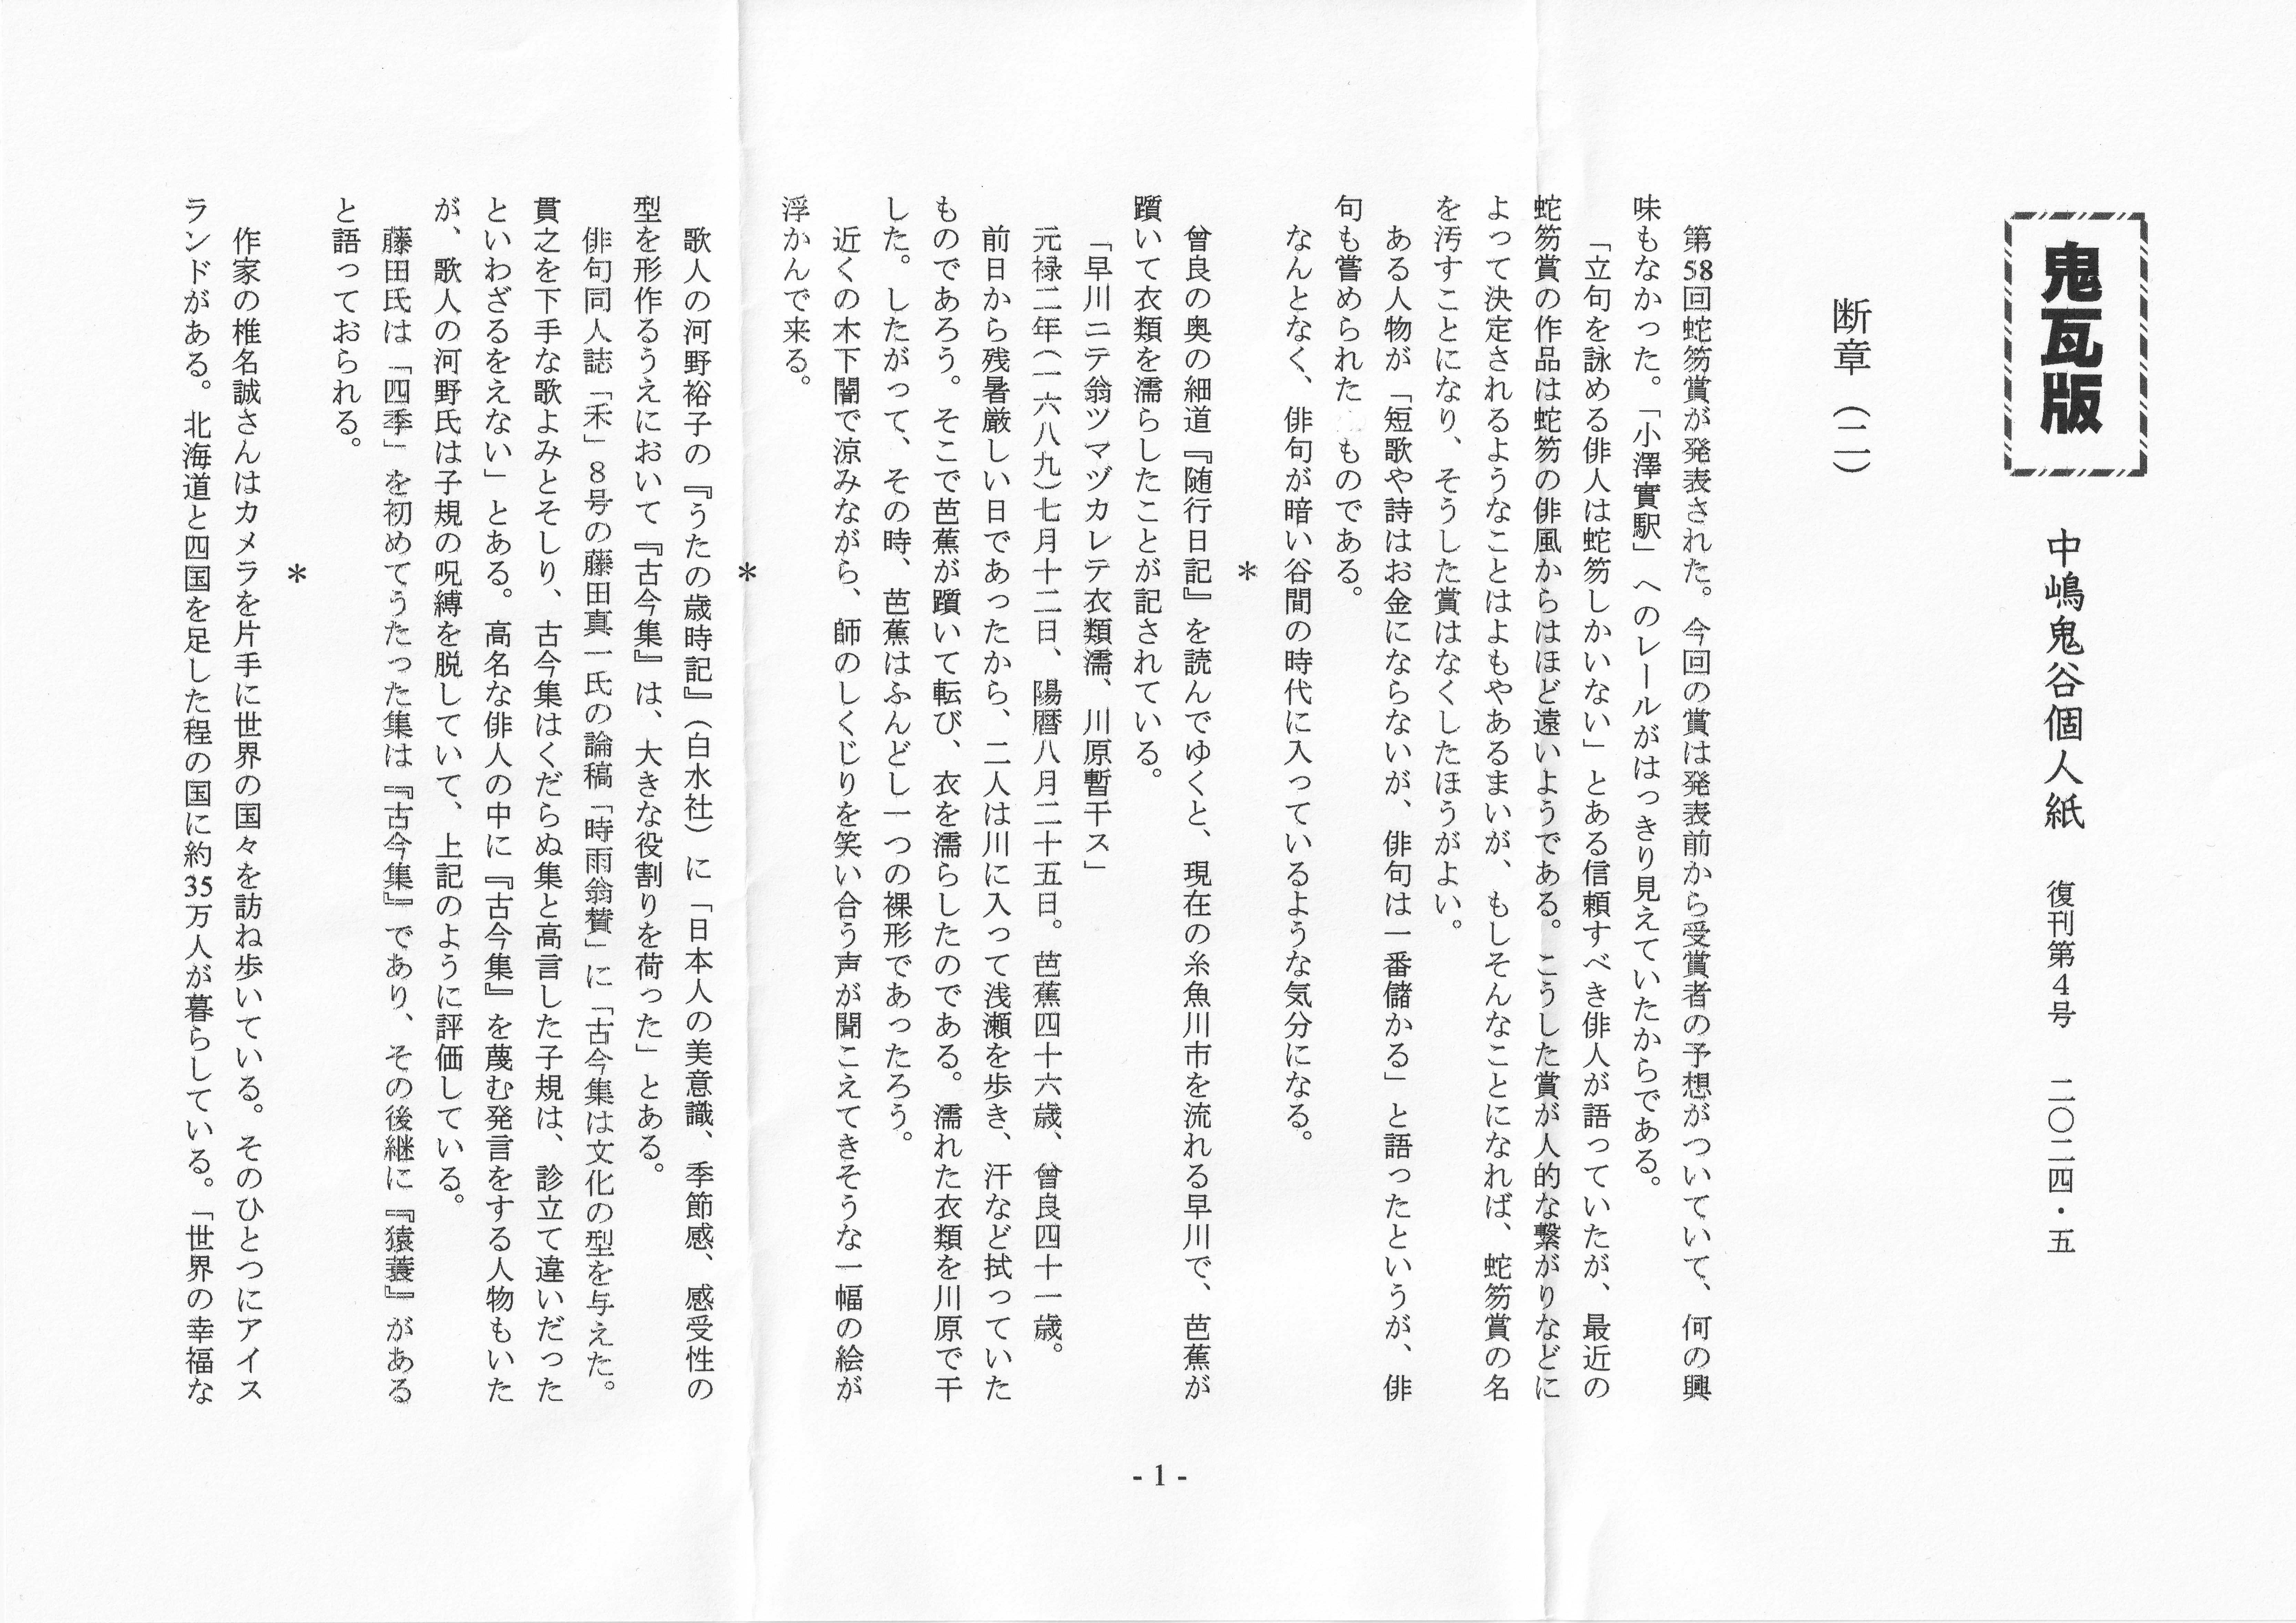 鬼瓦版
中嶋鬼谷個人紙　復刊第4号　二〇二四・五
断章（二）
第58回蛇笏賞が発表された。今回の賞は発表前から受賞者の予想がついていて、何の興
味もなかった。「小澤實駅」へのレールがはっきり見えていたからである。
「立句を詠める俳人は蛇笏しかいない」とある信頼すべき俳人が語っていたが、最近の
蛇笏賞の作品は蛇笏の俳風からはほど遠いようである。こうした賞が人的な繋がりなどに
よって決定されるようなことはよもやあるまいが、もしそんなことになれば、蛇笏賞の名
を汚すことになり、そうした賞はなくしたほうがよい。
ある人物が「短歌や詩はお金にならないが、俳句は一番儲かる」と語ったというが、俳
句も嘗められたものである。
なんとなく、俳句が暗い谷間の時代に入っているような気分になる。
＊
曾良の奥の細道『随行日記』を読んでゆくと、現在の糸魚川市を流れる早川で、芭蕉が
躓いて衣類を濡らしたことが記されている。
「早川ニテ翁ツマヅカレテ衣類濡、川原暫干ス」
元禄二年（一六八九）七月十二日、陽暦八月二十五日。芭蕉四十六歳、曾良四十一歳。
前日から残暑厳しい日であったから、二人は川に入って浅瀬を歩き、汗など拭っていた
ものであろう。そこで芭蕉が躓いて転び、衣を濡らしたのである。濡れた衣類を川原で干
した。したがって、その時、芭蕉はふんどし一つの裸形であったろう。
近くの木下闇で涼みながら、師のしくじりを笑い合う声が聞こえてきそうな一幅の絵が
浮かんで来る。
＊
歌人の河野裕子の『うたの歳時記』（白水社）に「日本人の美意識、季節感、感受性の
型を形作るうえにおいて『古今集』は、大きな役割りを荷った」とある。
俳句同人誌「禾」8号の藤田真一氏の論稿「時雨翁賛」に「古今集は文化の型を与えた。
貫之を下手な歌よみとそしり、古今集はくだらぬ集と高言した子規は、診立て違いだった
といわざるをえない」とある。高名な俳人の中に『古今集』を蔑む発言をする人物もいた
が、歌人の河野氏は子規の呪縛を脱していて、上記のように評価している。
藤田氏は「四季」を初めてうたった集は『古今集』であり、その後継に『猿蓑』がある
と語っておられる。
＊
作家の椎名誠さんはカメラを片手に世界の国々を訪ね歩いている。そのひとつにアイス
ランドがある。北海道と四国を足した程の国に約35万人が暮らしている。「世界の幸福な
- 1 -